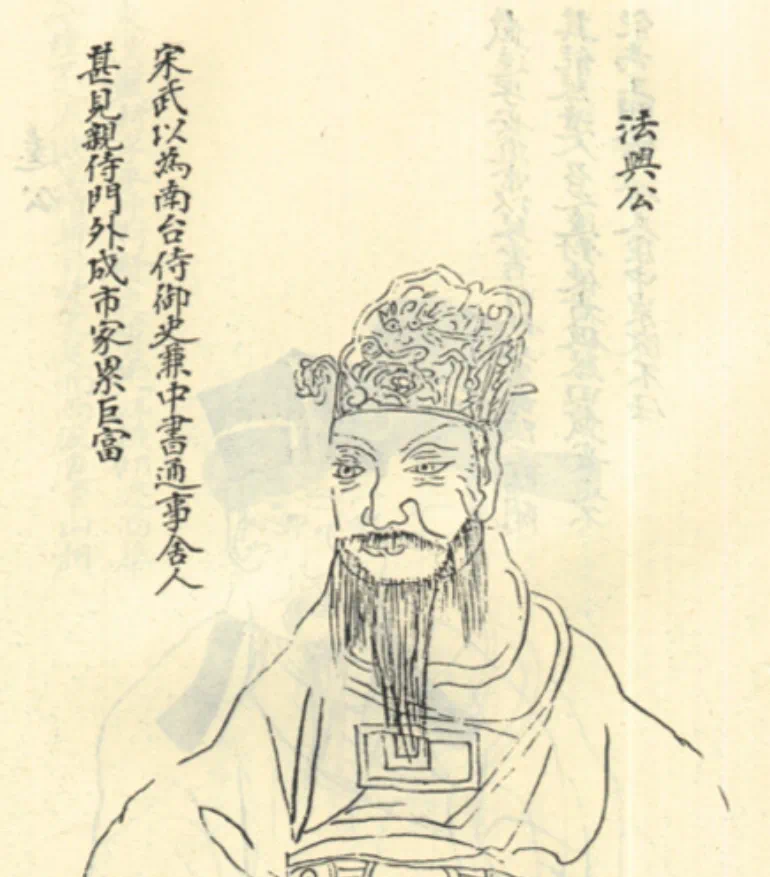 法興公
宋武以為南台侍御史兼中書通事舍人
甚見親侍門外成市家累巨富